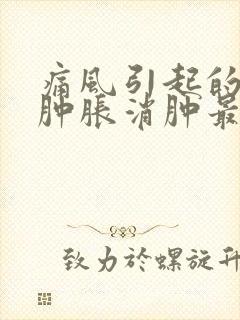 痛風引起的
肿脹消肿最
致力於螺旋升